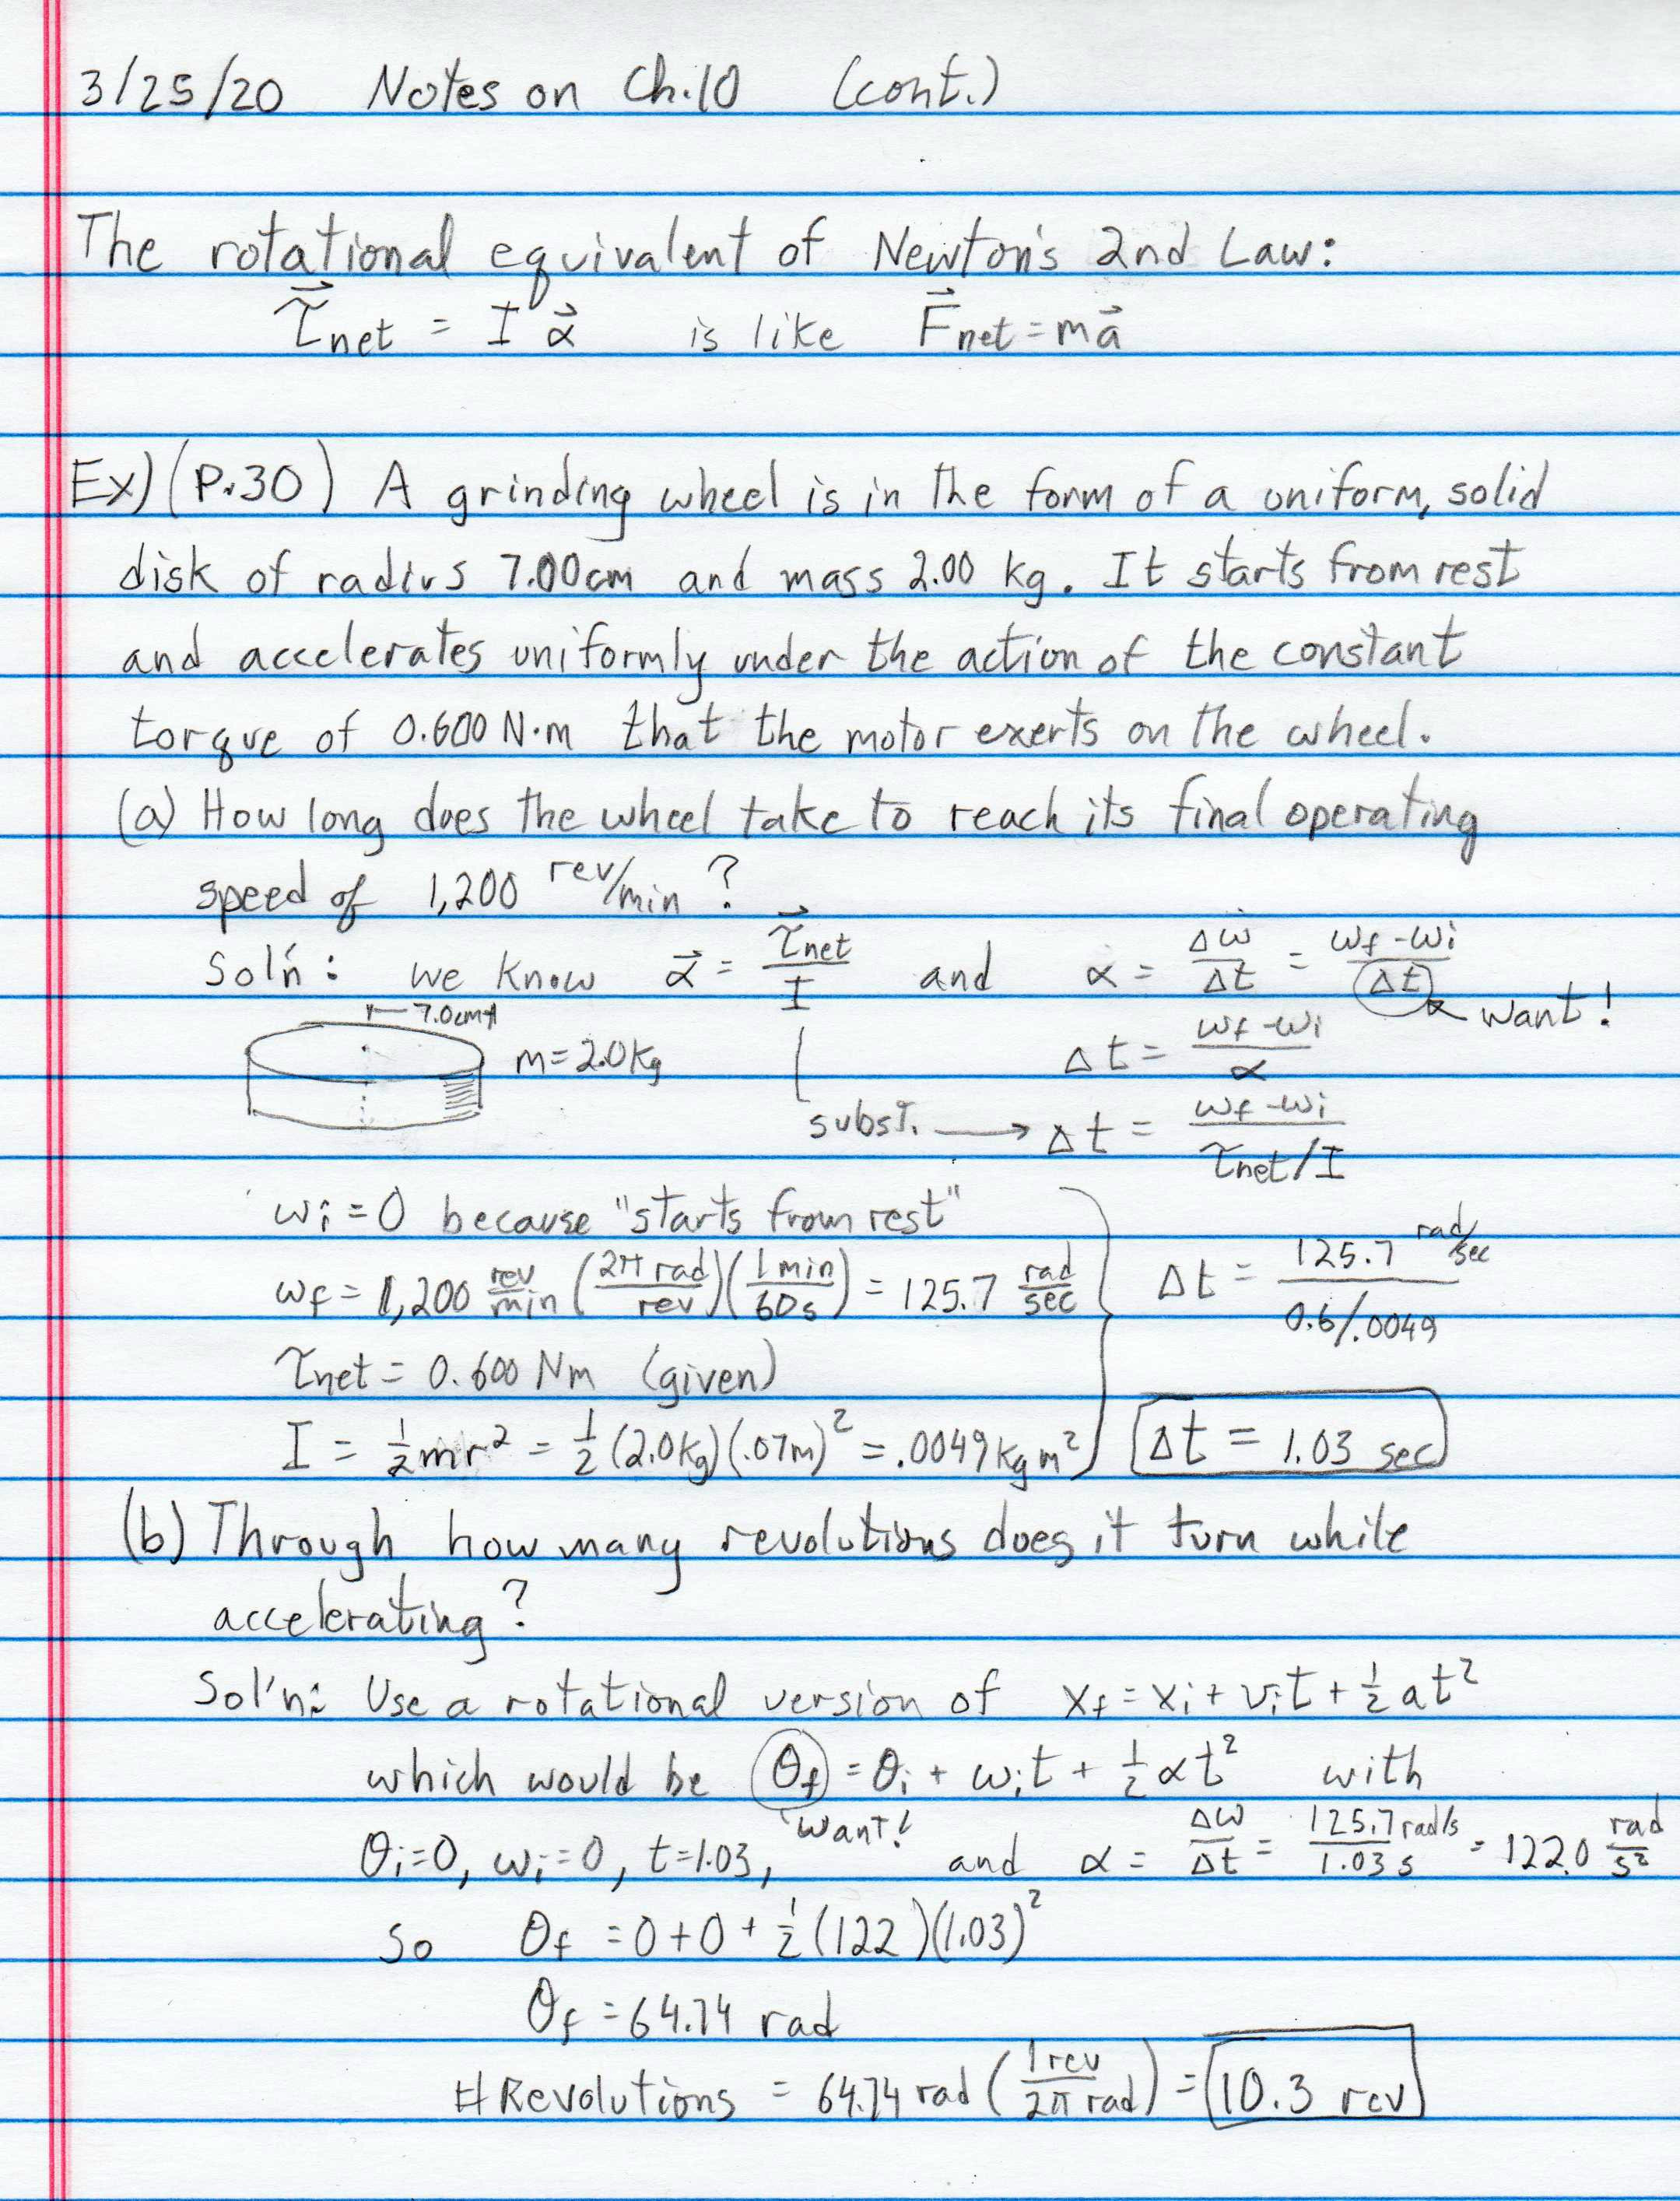 3/25/20 Notes on Ch.10 (cont.)
The rotational equivalent of Newton's 2nd Law:
τ⃗net = I α⃗ is like F⃗net = ma⃗
Ex) (P.30) A grinding wheel is in the form of a uniform, solid
disk of radius 7.00cm and mass 2.00 kg. It starts from rest
and accelerates uniformly under the action of the constant
torque of 0.600 N·m that the motor exerts on the wheel.
(a) How long does the wheel take to reach its final operating
speed of 1,200 rev/min ?
Sol'n: we know α⃗ = τ⃗net/I and α = Δω/Δt = ωf-ωi/Δt
want!
7.0cm
m=2.0kg
Δt = ωf-ωi/α
subst. → Δt = ωf-ωi/τnet/I
ωi=0 because "starts from rest"
ωf = 1,200 rev/min (2π rad/rev)(1 min/60s) = 125.7 rad/sec
Δt = 125.7 rad/sec / 0.6/.0049
τnet = 0.600 Nm (given)
I = 1/2 mr² = 1/2 (2.0kg)(.07m)² = .0049 kg m²
Δt = 1.03 sec
(b) Through how many revolutions does it turn while
accelerating?
Sol'n: Use a rotational version of xf = xi + vit + 1/2 at²
which would be θf = θi + ωit + 1/2 αt² with
want!
θi=0, ωi=0, t=1.03, and α = Δω/Δt = 125.7 rad/s / 1.03 s = 122.0 rad/s²
so θf = 0+0+ 1/2 (122)(1.03)²
θf = 64.74 rad
# Revolutions = 64.74 rad (1 rev/2π rad) = 10.3 rev